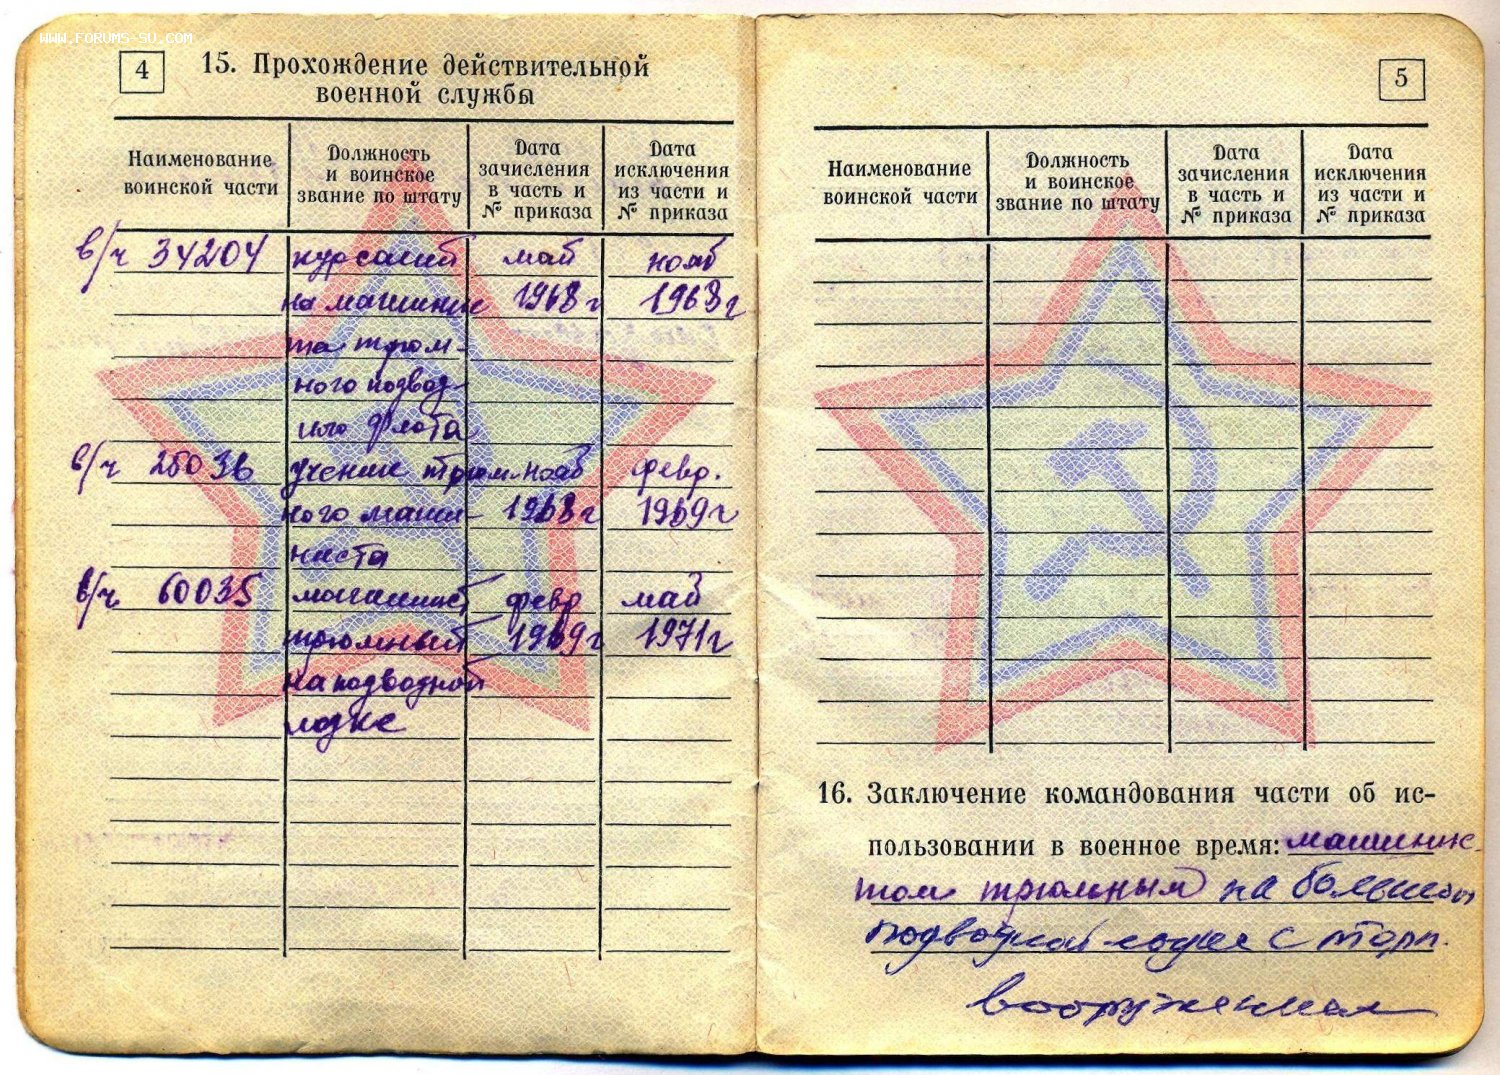 WWW.FORUMS-SU.COM
4
15. Прохождение действительной
военной службы
Наименование
воинской части
Должность
и воинское
звание по штату
Дата
зачисления
в часть и
№ приказа
Дата
исключения
из части и
№ приказа
в/ч 34204 курсант май нояб
на машинис 1968 г 1968 г
та трюм-
ного подвод-
ного флота
в/ч 25036 ученик трюм- нояб февр.
ного маши- 1968 г 1969 г
ниста
в/ч 60035 машинист февр май
трюмный 1969 г 1971 г
на подводной
лодке
5
Наименование
воинской части
Должность
и воинское
звание по штату
Дата
зачисления
в часть и
№ приказа
Дата
исключения
из части и
№ приказа
16. Заключение командования части об ис-
пользовании в военное время: машинис-
том трюмным на большой
подводной лодке с торп.
вооружением